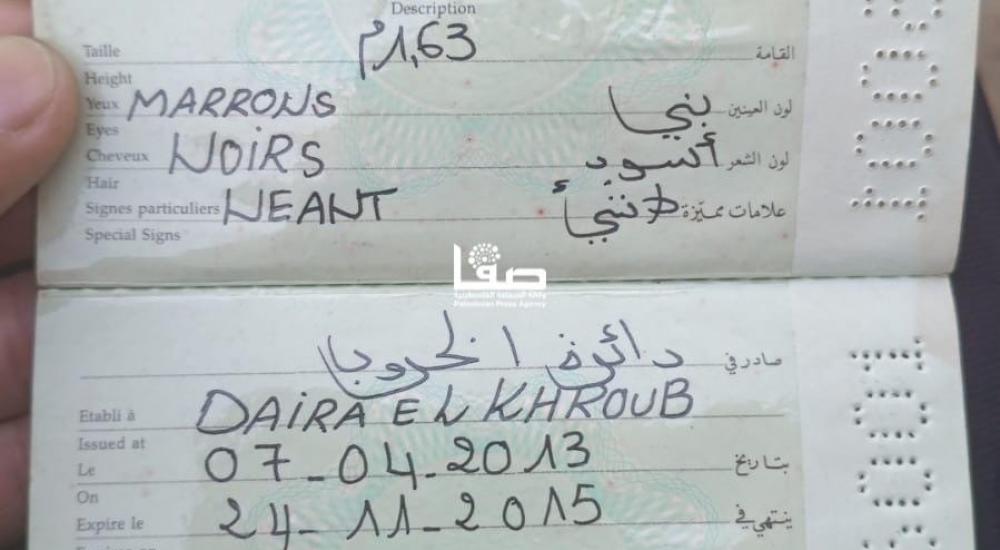 Description
Taille 1,63م القامة
Height
Yeux MARRONS بني لون العينين
Eyes
Cheveux NOIRS أسود لون الشعر
Hair
Signes particuliers NEANT علامات مميّزة
Special Signs
صفا
وكالة الصحافة الفلسطينية
Palestinian Press Agency
صادر في دائرة الخروب
Etabli à DAIRA EL KHROUB
Issued at
Le 07-04-2013 بتاريخ
On
Expire le 24-11-2015 ينتهي في